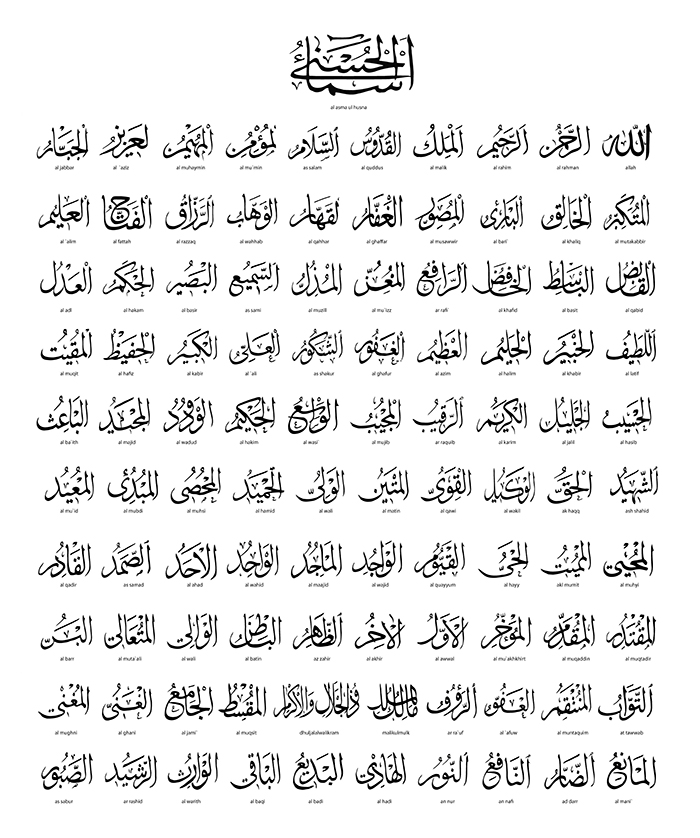 أسماء الحسنى
al asma ul husna
الله الرحمن الرحيم الملك القدوس السلام المؤمن المهيمن العزيز الجبار
allah al rahman al rahim al malik al quddus as salam al mu´min al muhaymin al ´aziz al jabbar
المتكبر الخالق البارئ المصور الغفار القهار الوهاب الرزاق الفتاح العليم
al mutakabbir al khaliq al bari´ al musawwir al ghaffar al qahhar al wahhab al razzaq al fattah al ´alim
القابض الباسط الخافض الرافع المعز المذل السميع البصير الحكم العدل
al qabid al basit al khafid ar rafi´ al mu´izz al muzill as sami al basir al hakam al adl
اللطيف الخبير الحليم العظيم الغفور الشكور العلي الكبير الحفيظ المقيت
al latif al khabir al halim al azim al ghafur as shakur al ´ali al kabir al hafiz al muqit
الحسيب الجليل الكريم الرقيب المجيب الواسع الحكيم الودود المجيد الباعث
al hasib al jalil al karim ar raquib al mujib al wasi´ al hakim al wadud al majid al ba´ith
الشهيد الحق الوكيل القوي المتين الولي الحميد المحصي المبدئ المعيد
ash shahid ak haqq al wakil al qawi al matin al wali al hamid al muhsi al mubdi al mu´id
المحيي المميت الحي القيوم الواجد الماجد الواحد الاحد الصمد القادر
al muhyi akl mumit al hayy al quayyum al wajid al maajid al wahid al ahad as samad al qadir
المقتدر المقدم المؤخر الأول الآخر الظاهر الباطن الوالي المتعالي البر
al muqtadir al muqaddin al mu´akhkhirt al awwal al akhir az zahir al batin al wali al muta´ali al barr
التواب المنتقم العفو الرؤوف مالك الملك ذو الجلال والإكرام المقسط الجامع الغني المغني
at tawwab al muntaquim al ´afuw ar ra´uf malikulmulk dhuljalalwalikram al muqsit al jami´ al ghani al mughni
المانع الضار النافع النور الهادي البديع الباقي الوارث الرشيد الصبور
al mani´ ad darr an nafi an nur al hadi al badi al baqi al warith ar rashid as sabur